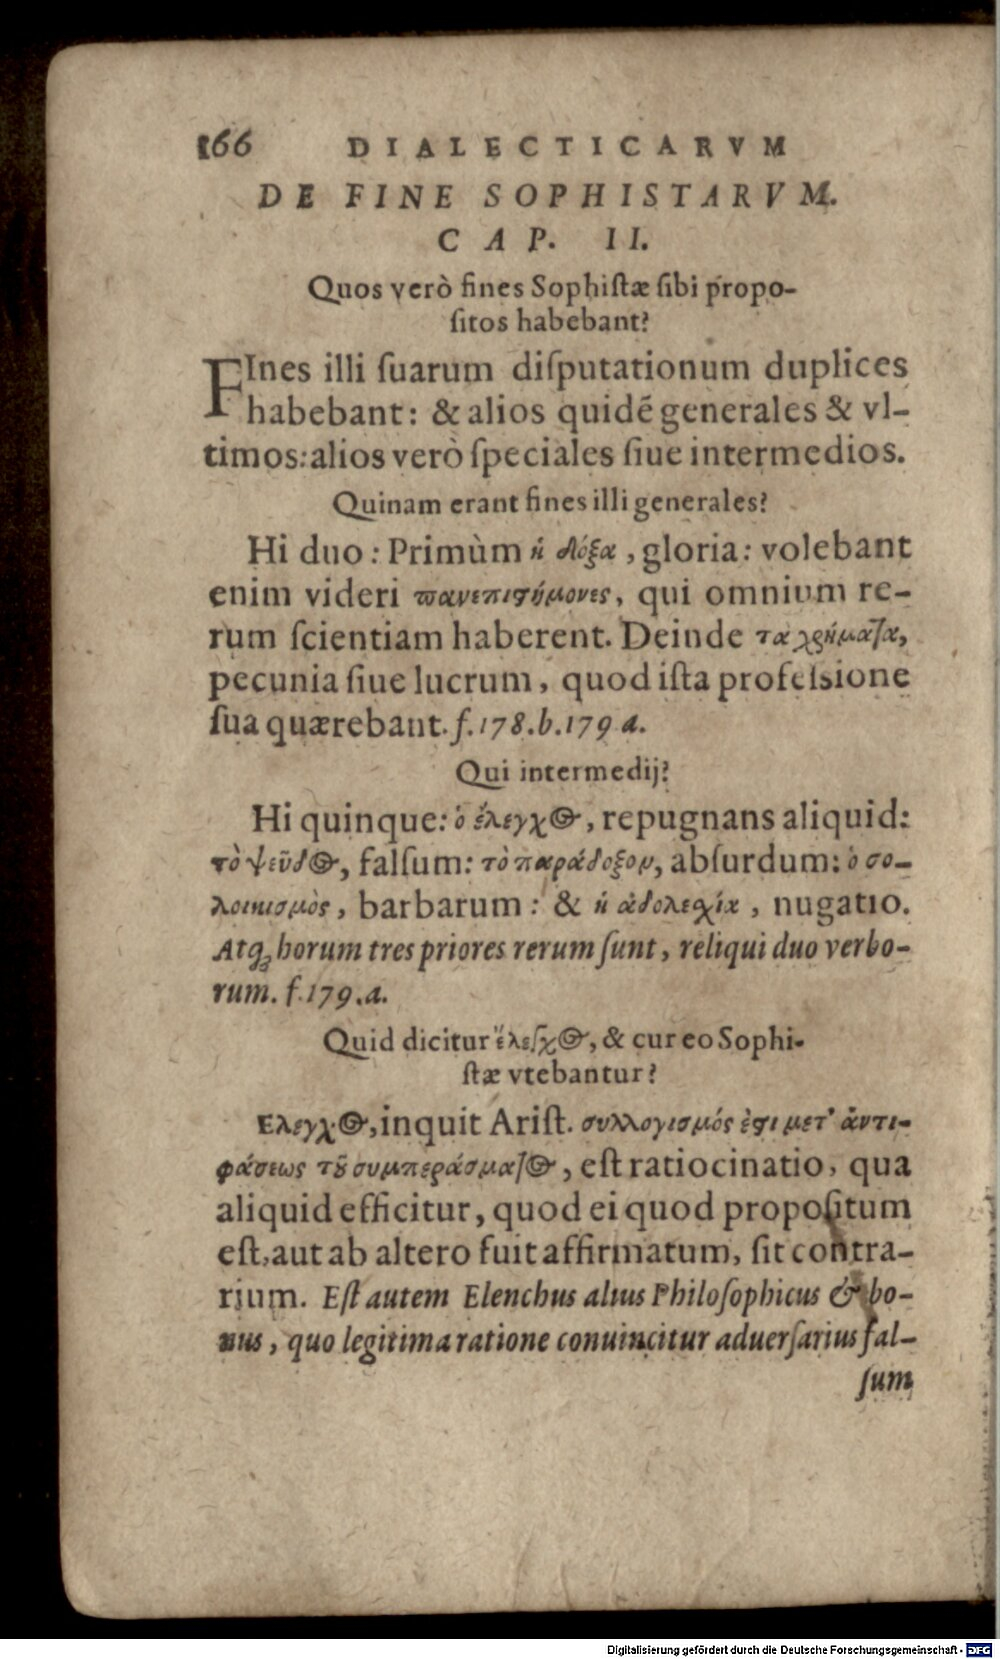 166 DIALECTICARVM
DE FINE SOPHISTARVM.
CAP. II.
Quos verò fines Sophiſtæ ſibi propo-
ſitos habebant?
FInes illi ſuarum diſputationum duplices
habebant: & alios quidẽ generales & vl-
timos: alios verò ſpeciales ſiue intermedios.
Quinam erant fines illi generales?
Hi duo: Primùm ἡ δόξα, gloria: volebant
enim videri πανεπιϛήμονες, qui omnium re-
rum ſcientiam haberent. Deinde τα χρήματα,
pecunia ſiue lucrum, quod iſta profeſsione
ſua quærebant. f. 178. b. 179 a.
Qui intermedij?
Hi quinque: ὁ ἔλεγχος, repugnans aliquid:
τὸ ψεῦδος, falſum: τὸ παράδοξον, abſurdum: ὁ σο-
λοικισμὸς, barbarum: & ἡ ἀδολεχία, nugatio.
Atq; horum tres priores rerum ſunt, reliqui duo verbo-
rum. f. 179. a.
Quid dicitur ἔλεγχος, & cur eo Sophi-
ſtæ vtebantur?
Ελεγχος, inquit Ariſt. συλλογισμός ἐϛι μετ' ἀντι-
φάσεως τȣ͂ συμπεράσματος, eſt ratiocinatio, qua
aliquid efficitur, quod ei quod propoſitum
eſt, aut ab altero fuit affirmatum, ſit contra-
rium. Eſt autem Elenchus alius Philoſophicus & bo-
nus, quo legitima ratione conuincitur aduerſarius fal-
ſum
Digitalisierung gefördert durch die Deutsche Forschungsgemeinschaft - DFG